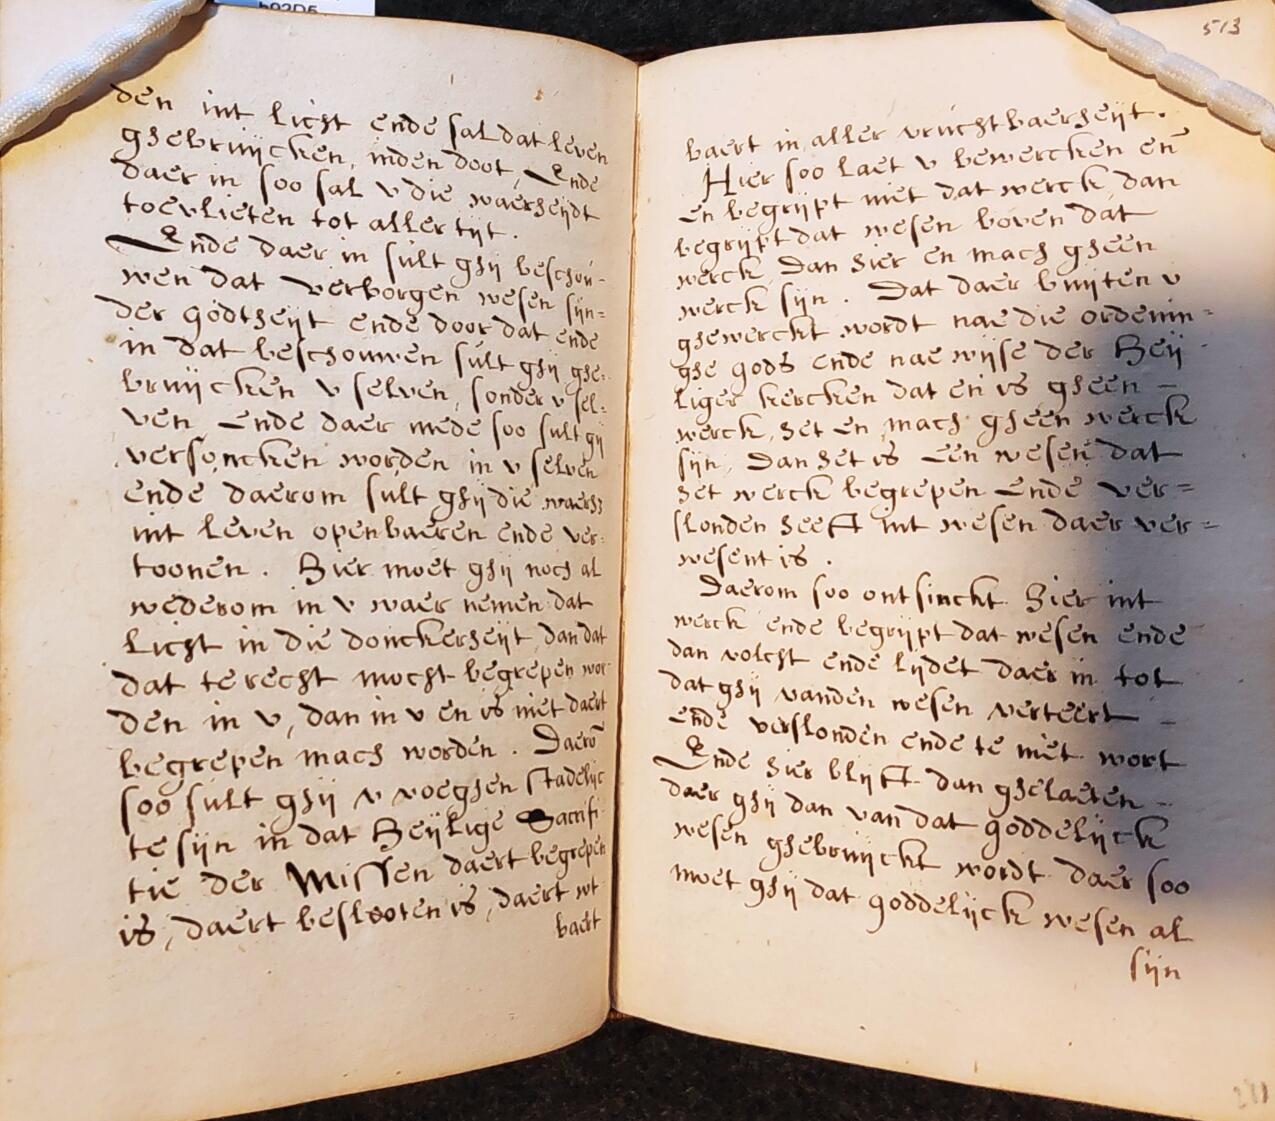 h92D5
den int licht ende sal dat leven
ghebruijcken, inden doot, Ende
daer in soo sal v die waerheijdt
toevlieten tot aller tijt.
Ende daer in sult ghij beschou-
wen dat verborgen wesen sijn=
der godtheijt ende door dat ende
in dat beschouwen sult ghij ghe-
bruijcken v selven, sonder v sel-
ven Ende daer mede soo sult gij
versoncken worden in v selven
ende daerom sult ghij die waerh
int leven openbaeren ende ver-
toonen. Hier moet ghij noch al
wederom in v waer nemen dat
licht in die donckerheijt, dan dat
dat te recht mocht begrepen wor-
den in v, dan in v en is niet daert
begrepen mach worden. Daerō
soo sult ghij v voeghen stadelijc
te sijn in dat Heijlige Sacrifi
tie der Missen daert begrepen
is, daert beslooten is, daert wt
baert
513
baert in aller vruchtbaerheijt.
Hier soo laet v bewercken en̄
en begrijpt niet dat werck, dan
begrijpt dat wesen boven dat
werck Dan hier en mach gheen
werck sijn. Dat daer buijten v
ghewerckt wordt nae die ordenin-
ghe gods ende nae wijse der Heij-
liger kercken dat en is gheen
werck, het en mach gheen werck
sijn, Dan het is Een wesen dat
het werck begrepen Ende ver=
slonden heeft int wesen daer ver=
wesent is.
Daerom soo ontsinckt Hier int
werck ende begrijpt dat wesen ende
dan volcht ende lijdet daer in tot
dat ghij vanden wesen verteert
ende verslonden ende te niet wort
Ende hier blijft dan ghelaeten
daer ghij dan van dat goddelijck
wesen ghebruijckt wordt daer soo
moet ghij dat goddelijck wesen al
sijn